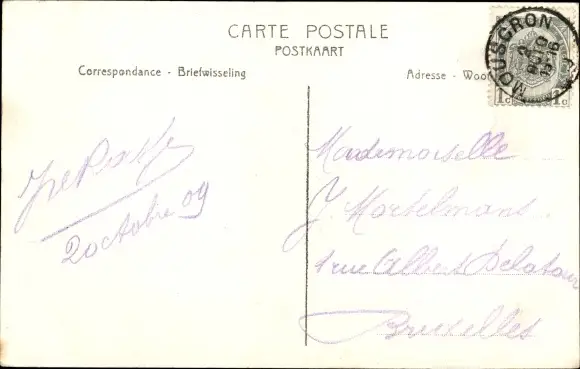 CARTE POSTALE
POSTKAART
Correspondance - Briefwisseling
Adresse - Woo
MOUSCRON
1c 1c
2 octobre 09
Mademoiselle
J. Mortelmans.
1 rue Albert Delatour
Bruxelles